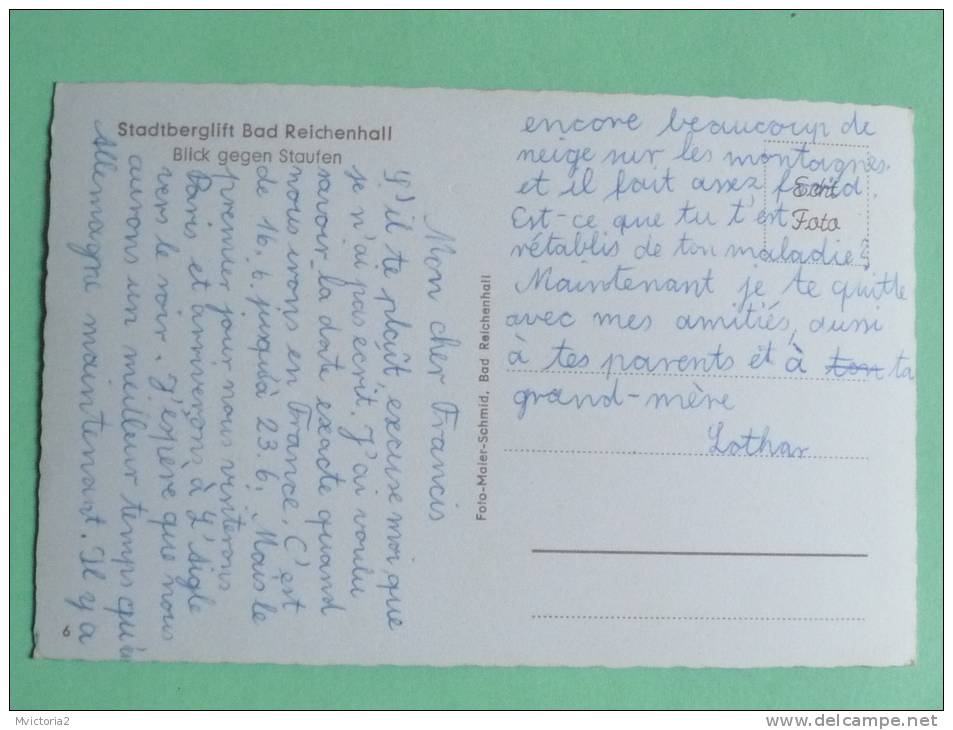 Stadtberglift Bad Reichenhall
Blick gegen Staufen
Mon cher Francis
S'il te plaît, excuse moi que
je n'ai pas ecrit. J'ai voulu
savoir la date exacte quand
nous irons en France. C'est
de 16.6. jusqu'à 23.6. Mais le
premier jour nous visiterons
Paris et arriverons à L'Aigle
vers le soir. J'espère que nous
aurons un meilleur temps qu'en
Allemagne maintenant. Il y a
6
Foto-Maier-Schmid, Bad Reichenhall
encore beaucoup de
neige sur les montagnes.
et il fait assez froid.
Est-ce que tu t'est
rétablis de ton maladie?
Maintenant je te quitte
avec mes amitiés, aussi
à tes parents et à ton ta
grand-mère
Lothar
Echt
Foto
Mvictoria2
delcampe.net